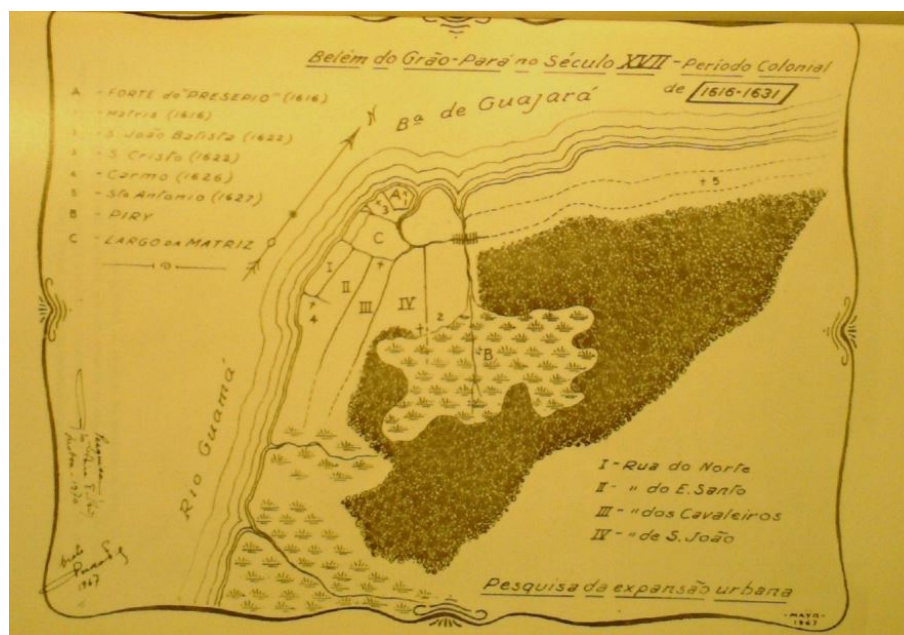 Belém do Grão-Pará no Século XVII - Período Colonial
de 1616-1631
A - FORTE do "PRESEPIO" (1616)
1 - Matriz (1616)
3 - S. João Batista (1622)
2 - S. Cristo (1622)
4 - Carmo (1626)
5 - Sto Antonio (1627)
B - PIRY
C - LARGO DA MATRIZ
N
Bª de Guajará
A
1
3
C
+ 5
I
II
III
IV
4
2
B
Rio Guamá
I - Rua do Norte
II - " do E. Santo
III - " dos Cavaleiros
IV - " de S. João
1967
Pesquisa da expansão urbana
- MAYO -
1967